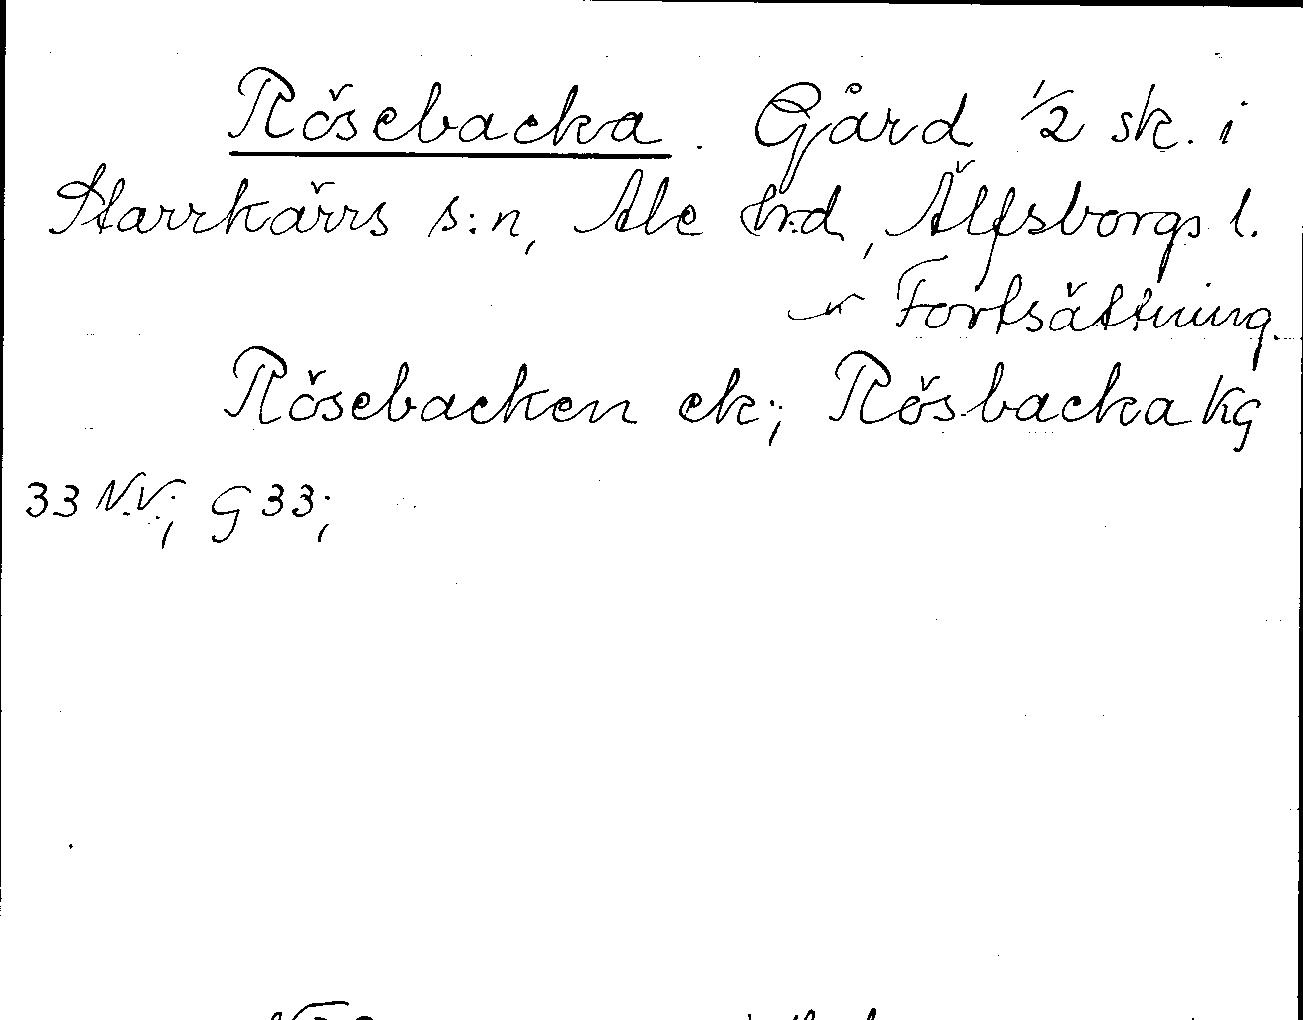 Rösebacka. Gård 1/2 sk. i
Starrkärrs s:n, Ale hrd, Älfsborgs l.
Fortsättning.
Rösebacken ek; Rösbacka KG
33 N.V.; G 33;